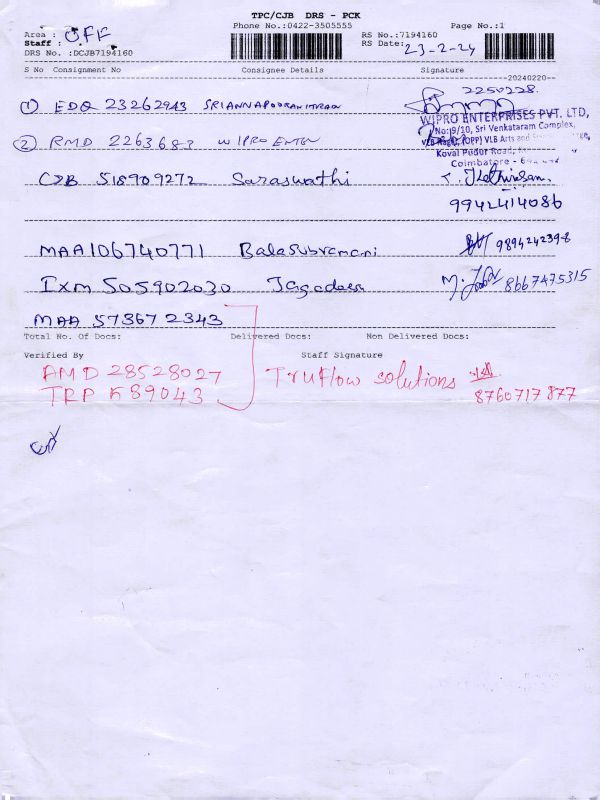 TPC/CJB DRS - PCK
Phone No.:0422-3505555 Page No.:1
Area : OFF
Staff :
RS No.:7194160
RS Date: 23-2-24
DRS No. :DCJB7194160
S No Consignment No Consignee Details Signature
20240220--
2250228
① EDQ 23262943
WIPRO ENTERPRISES PVT. LTD,
No:9/10, Sri Venkataram Complex,
② RMD 2263683 WIPRO
(OPP) VLB Arts and
Kovai Pudur Road,
Coimbatore -
CJB 518909272 Saraswathi
9942414086
MAA106740771 Balasubramani 9894242398
IXM 505902030 Jagadees 8667475315
MAA 573672343
Total No. Of Docs: Delivered Docs: Non Delivered Docs:
Verified By Staff Signature
AMD 28528027 Truflow solutions
TRP K89043 8760717877